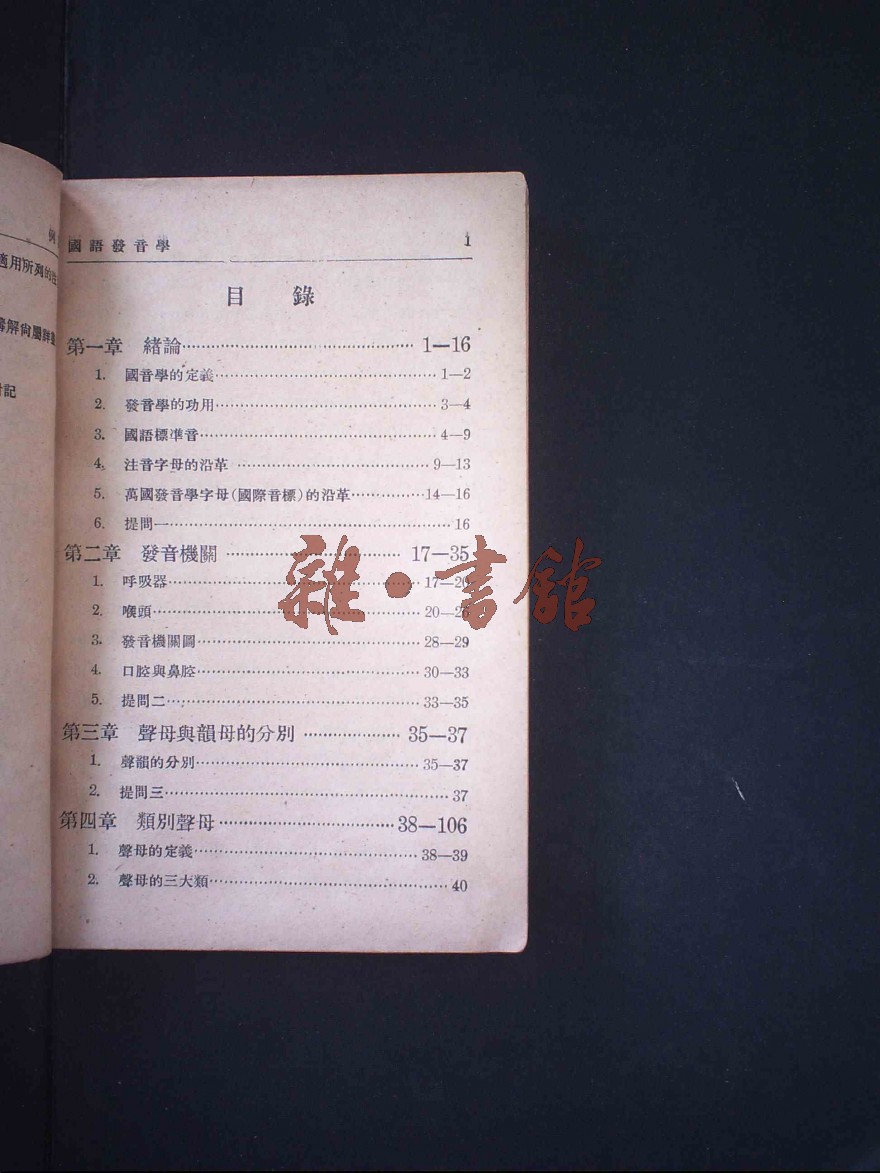 適用所列的
解尚屬詳盡
記
國語發音學 1
目錄
第一章 緒論 1—16
1. 國音學的定義 1—2
2. 發音學的功用 3—4
3. 國語標準音 4—9
4. 注音字母的沿革 9—13
5. 萬國發音學字母(國際音標)的沿革 14—16
6. 提問一 16
第二章 發音機關 17—35
1. 呼吸器 17—20
2. 喉頭 20—28
3. 發音機關圖 28—29
4. 口腔與鼻腔 30—33
5. 提問二 33—35
第三章 聲母與韻母的分別 35—37
1. 聲韻的分別 35—37
2. 提問三 37
第四章 類別聲母 38—106
1. 聲母的定義 38—39
2. 聲母的三大類 40
雜·書館